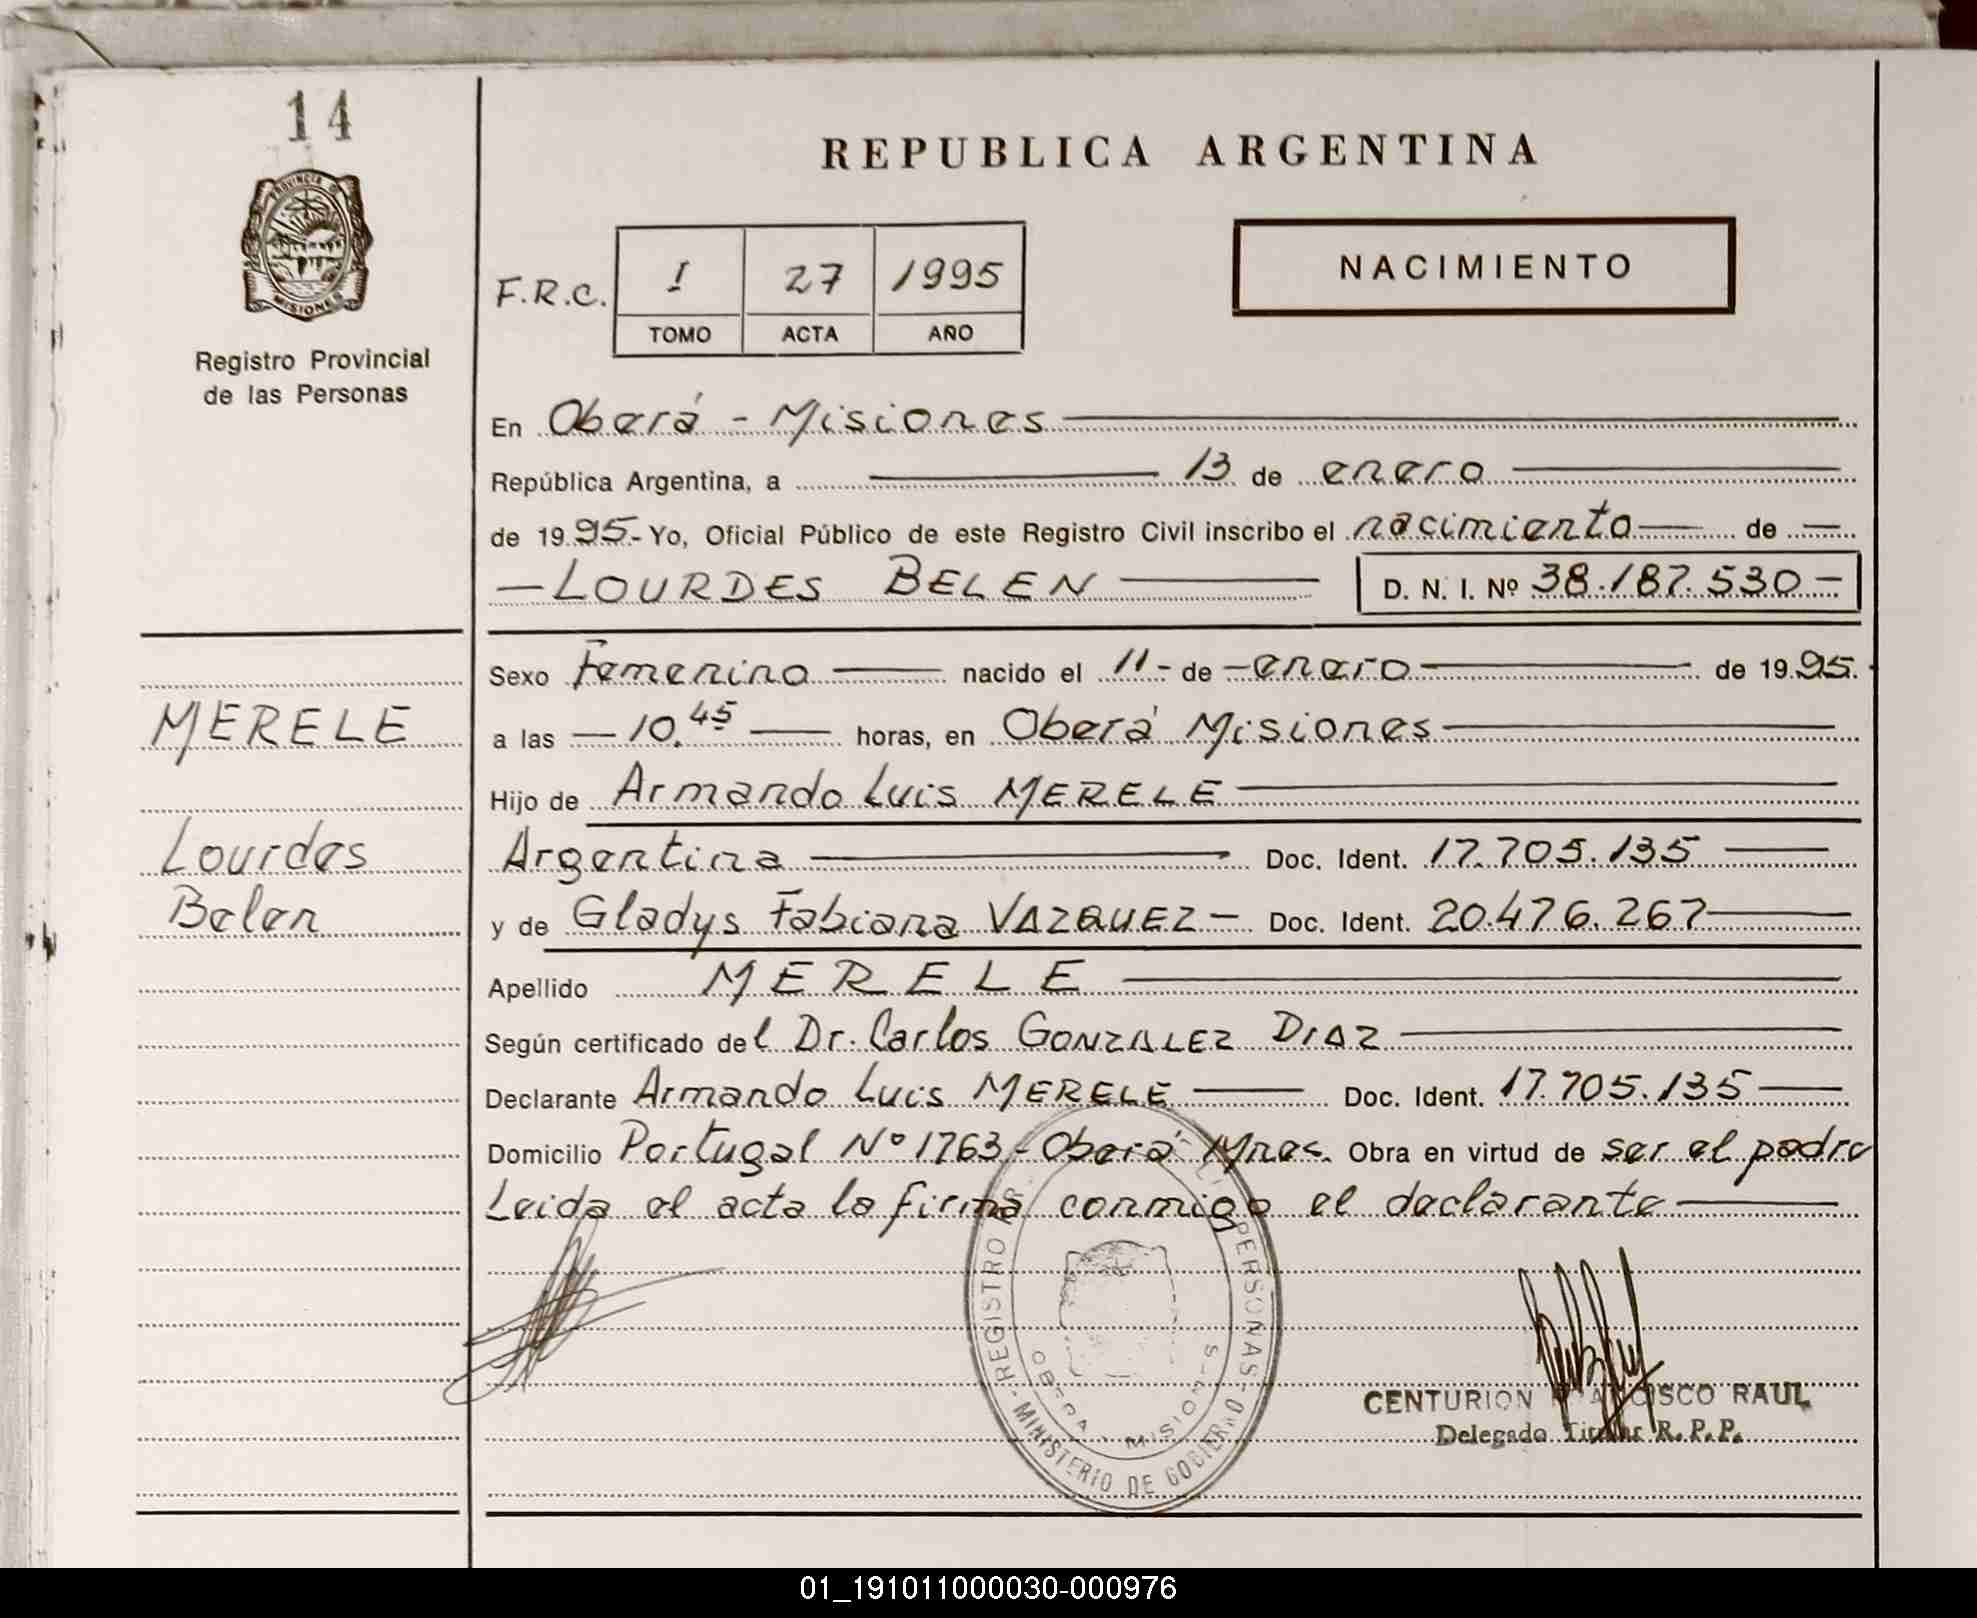 14
PROVINCIA DE
MISIONES
Registro Provincial
de las Personas
REPUBLICA ARGENTINA
F.R.C. I 27 1995
TOMO ACTA AÑO
NACIMIENTO
En Oberá - Misiones
República Argentina, a 13 de enero
de 1995.- Yo, Oficial Público de este Registro Civil inscribo el nacimiento de
LOURDES BELEN D. N. I. Nº 38.187.530-
MERELE
Lourdes
Belen
Sexo Femenino nacido el 11- de enero de 1995.
a las 10.45 horas, en Oberá Misiones
Hijo de Armando Luis MERELE
Argentina Doc. Ident. 17.705.135
y de Gladys Fabiana VAZQUEZ - Doc. Ident. 20.476.267
Apellido MERELE
Según certificado del Dr. Carlos GONZALEZ DIAZ
Declarante Armando Luis MERELE Doc. Ident. 17.705.135
Domicilio Portugal Nº 1763 - Oberá Mnes. Obra en virtud de ser el padre
Leida el acta la firma conmigo el declarante
REGISTRO PERSONAS
OBERA MISIONES
MINISTERIO DE GOBIERNO
CENTURION FRANCISCO RAUL
Delegado Titular R.P.P.
01_191011000030-000976